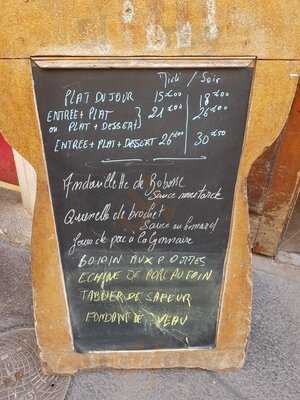 Midi / Soir
PLAT DU JOUR 15€00 18€00
ENTREE + PLAT } 21€00 26€00
OU PLAT + DESSERT
ENTREE + PLAT + DESSERT 26€00 30€50
Andouillette de Bobosse
Sauce moutarde
Quenelle de brochet
Sauce au homard
Joue de porc à la Lyonnaise
BOUDIN AUX POMMES
ECHINE DE PORC AU FOIN
TABLIER DE SAPEUR
FONDANT DE VEAU